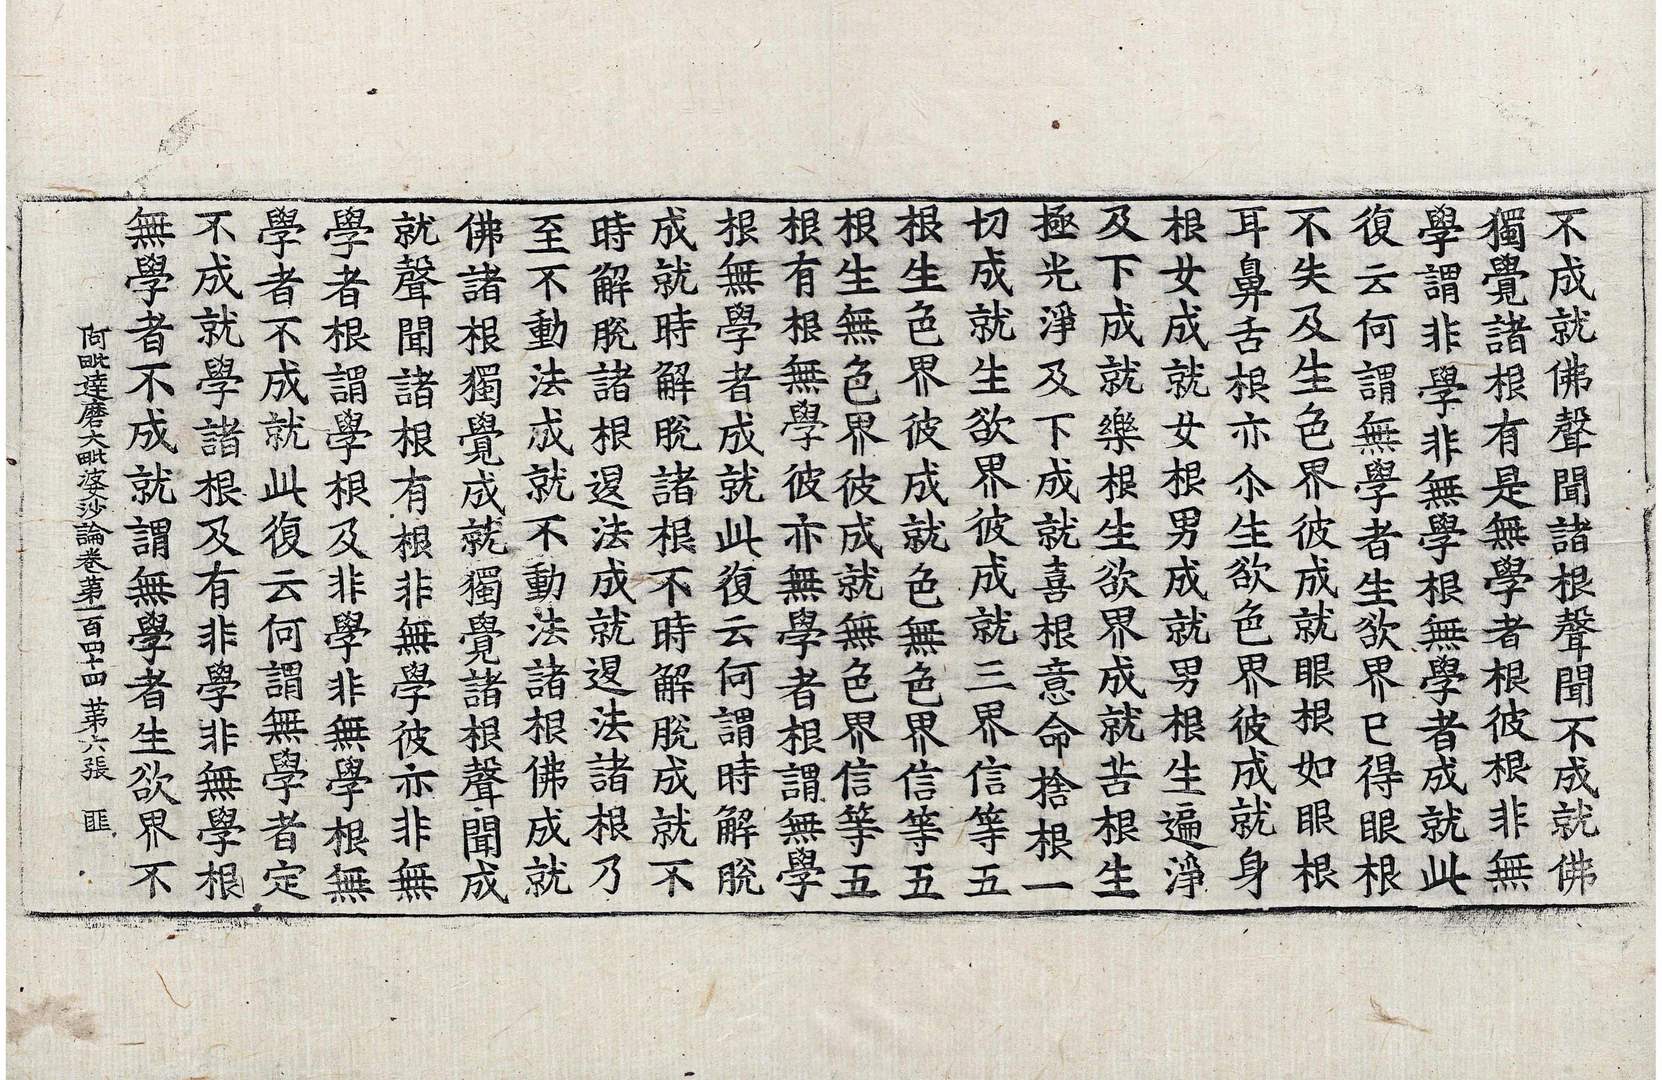 不成就佛聲聞諸根聲聞不成就佛
獨覺諸根有是無學者根彼根非無
學謂非學非無學根無學者成就此
復云何謂無學者生欲界已得眼根
不失及生色界彼成就眼根如眼根
耳鼻舌根亦尒生欲色界彼成就身
根女成就女根男成就男根生遍淨
及下成就樂根生欲界成就苦根生
極光淨及下成就喜根意命捨根一
切成就生欲界彼成就三界信等五
根生色界彼成就色無色界信等五
根生無色界彼成就無色界信等五
根有根無學彼亦無學者根謂無學
根無學者成就此復云何謂時解脫
成就時解脫諸根不時解脫成就不
時解脫諸根退法成就退法諸根乃
至不動法成就不動法諸根佛成就
佛諸根獨覺成就獨覺諸根聲聞成
就聲聞諸根有根非無學彼亦非無
學者根謂學根及非學非無學根無
學者不成就此復云何謂無學者定
不成就學諸根及有非學非無學根
無學者不成就謂無學者生欲界不
阿毗達磨大毗婆沙論卷第一百四十四 第六張 匪